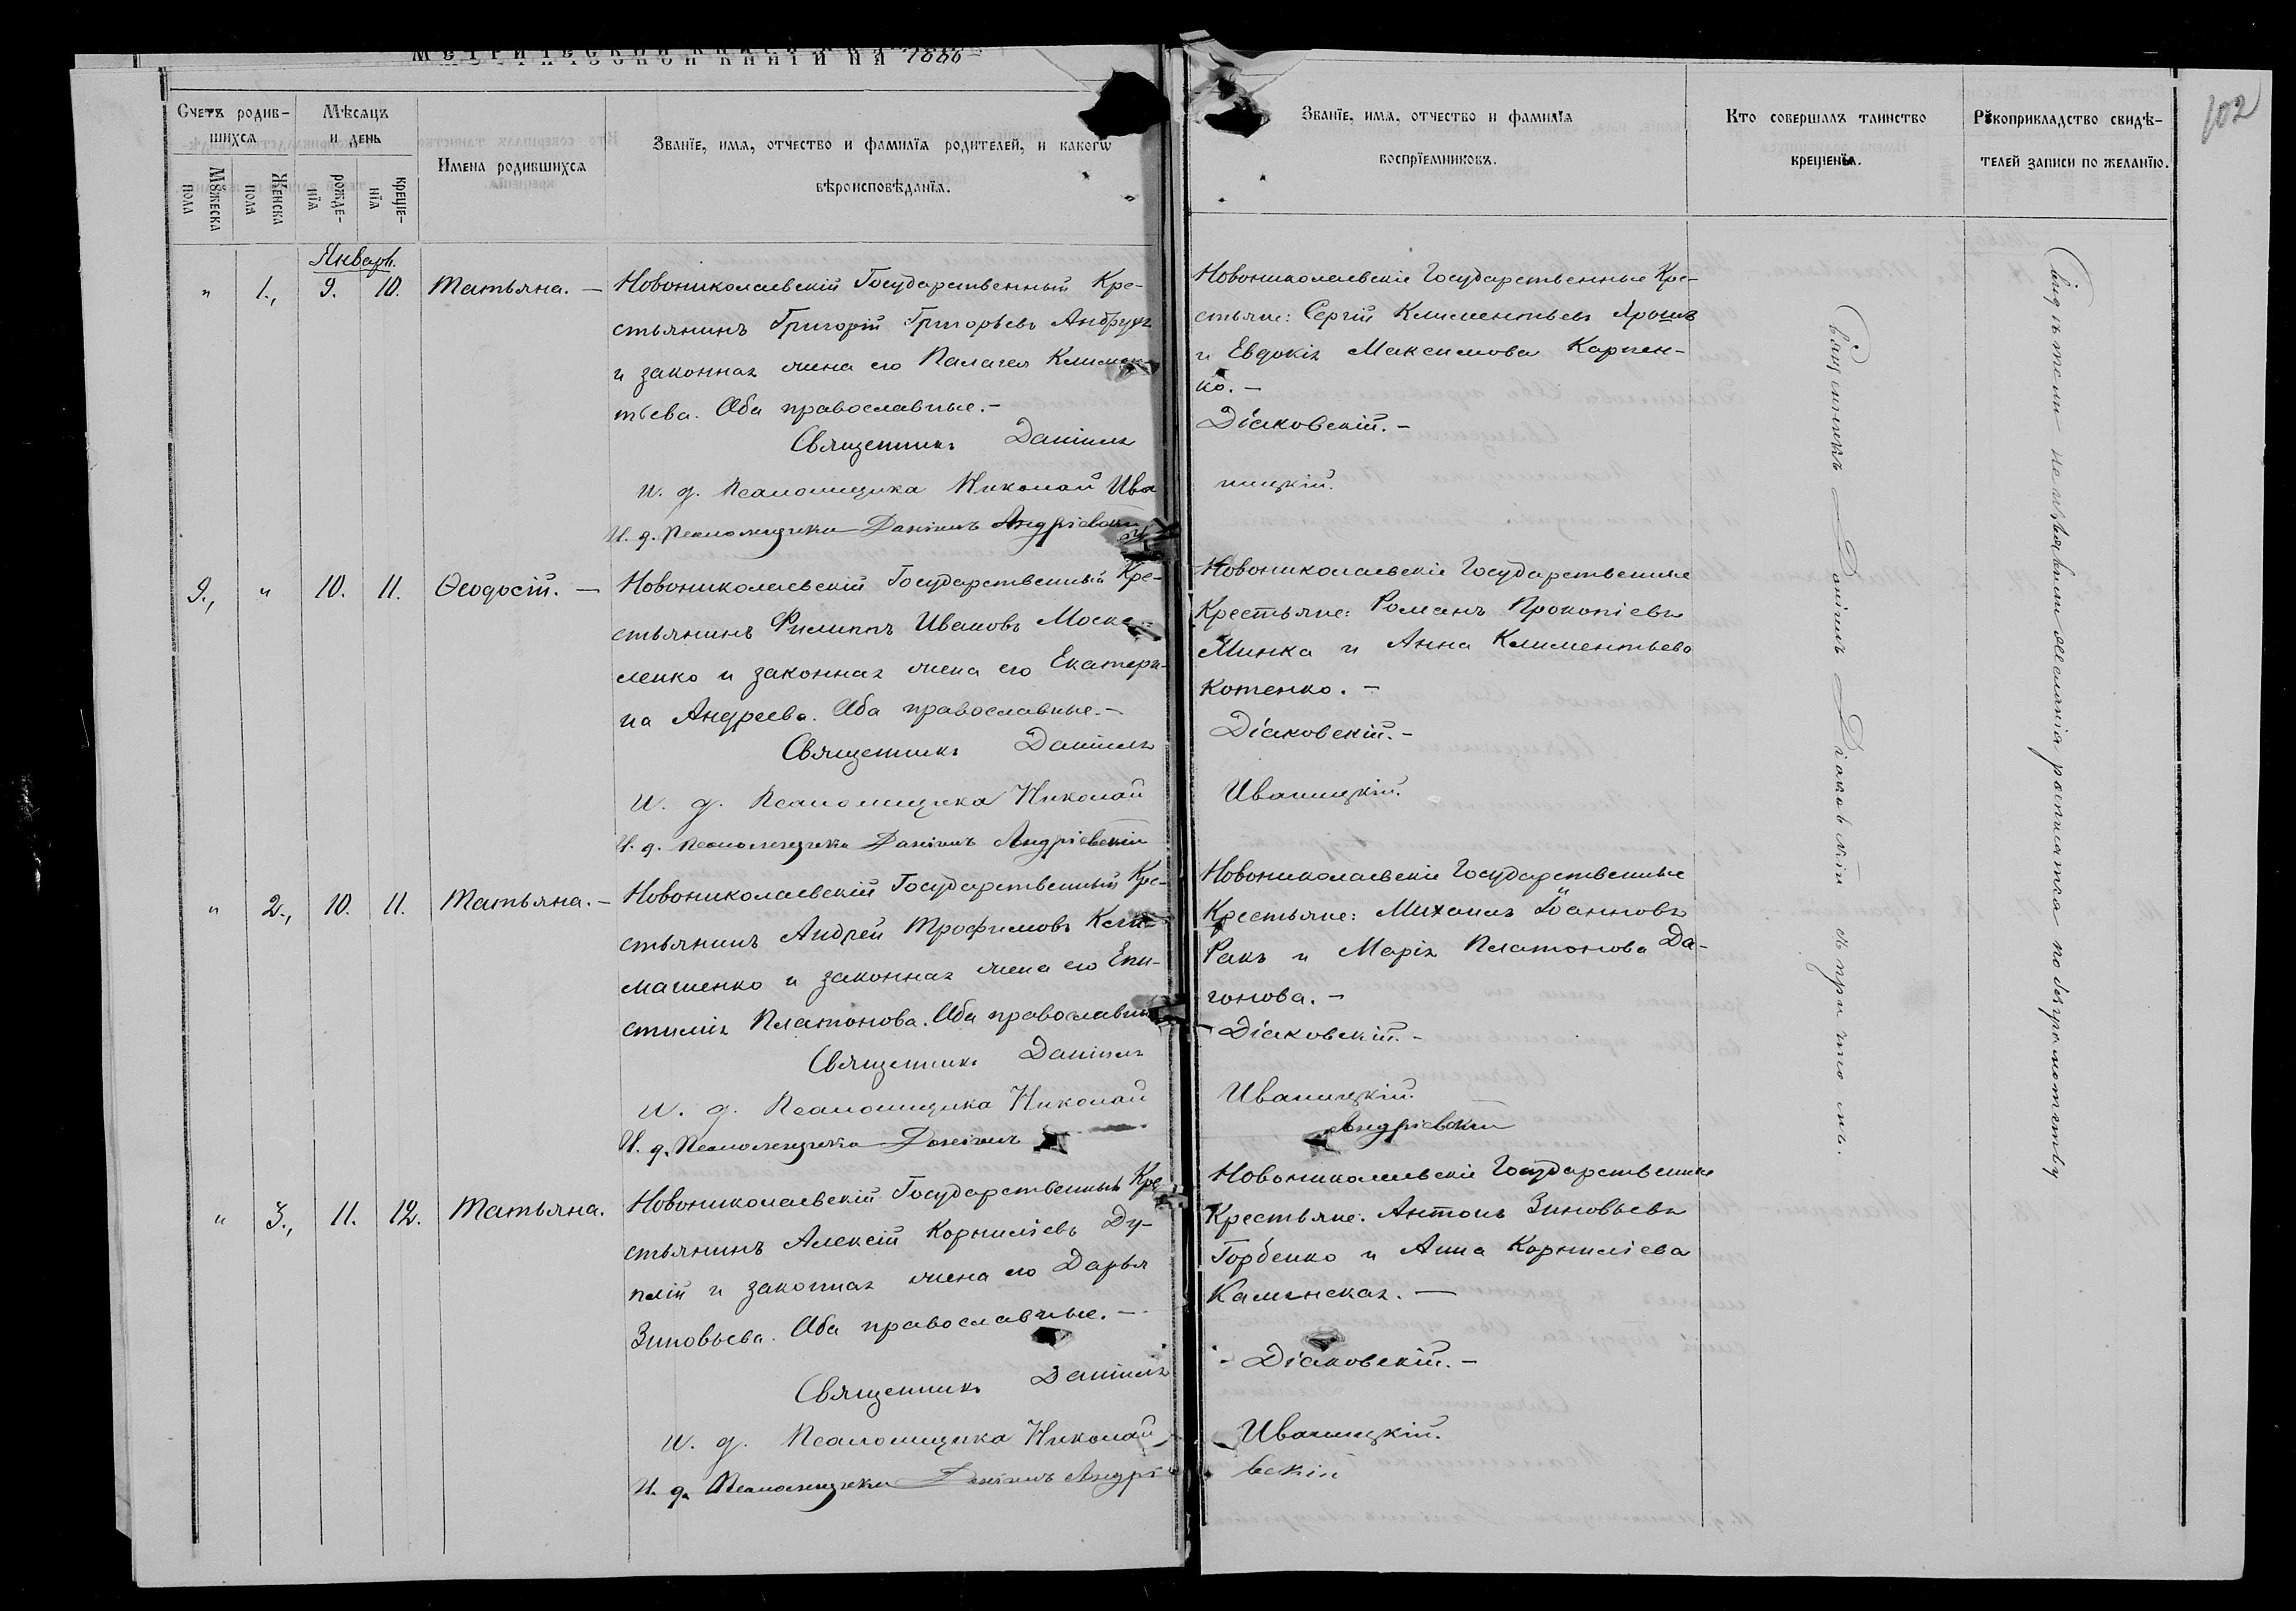 МЕТРИЧЕСКОЙ КНИГИ НА 1886
102
Счетъ родив-
шихся
Мѣсяцъ
и день
Мꙋжеска
пола
Женска
пола
рожде-
нїя
креще-
нїя
Имена родившихся
Званїе, имя, отчество и фамилїя родителей, и какогѡ
вѣроисповѣданїя.
Званїе, имя, отчество и фамилїя
воспрїемниковъ.
Кто совершалъ таинство
крещенїя.
Рꙋкоприкладство свидѣ-
телей записи по желанїю.
Январь.
" 1., 9. 10. Татьяна. —
Новониколаевскій Государственный Кре-
стьянинъ Григорій Григорьевъ
и законная жена его Палагея
тьева. Оба православные. -
Священникъ Даніилъ
И. д. Псаломщика Николай Ива
И. д. Псаломщика Даніилъ Андріевскій
Новониколаевскіе Государственные Кре-
стьяне: Сергій Климентьевъ Ярошъ
и Евдокія Максимова Карпен-
ко. -
Діаковскій. -
ницкій.
9., " 10. 11. Ѳеодосій. —
Новониколаевскій Государственный Кре-
стьянинъ Филиппъ Ивановъ Моска-
ленко и законная жена его Екатери-
на Андреева. Оба православные. -
Священникъ Даніилъ
И. д. Псаломщика Николай
И. д. Псаломщика Даніилъ Андріевскій
Новониколаевскіе Государственные
Крестьяне: Романъ Прокопіевъ
Минка и Анна Климентьева
Котенко. -
Діаковскій. -
Иваницкій.
" 2., 10. 11. Татьяна. -
Новониколаевскій Государственный Кре-
стьянинъ Андрей Трофимовъ
машенко и законная жена его Епи-
стимія Платонова. Оба православные
Священникъ Даніилъ
И. д. Псаломщика Николай
И. д. Псаломщика Даніилъ
Новониколаевскіе Государственные
Крестьяне: Михаилъ Іоанновъ
Ракъ и Марія Платонова Да-
гонова. -
Діаковскій. -
Иваницкій.
Андріевскій
" 3., 11. 12. Татьяна.
Новониколаевскій Государственный Кре
стьянинъ Алексій Корниліевъ Ду-
плій и законная жена его Дарья
Зиновьева. Оба православные. -
Священникъ Даніилъ
И. д. Псаломщика Николай
И. д. Псаломщика Даніилъ Андріе
Новониколаевскіе Государственные
Крестьяне: Антонъ Зиновьевъ
Горбенко и Анна Корниліева
Каминская. —
- Діаковскій. -
Иваницкій.
вскій
Священникъ Даніилъ Діаковскій